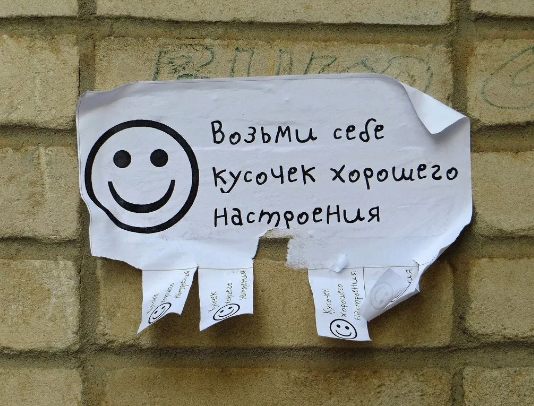 Возьми себе
кусочек хорошего
настроения
Кусочек
хорошего
настроения